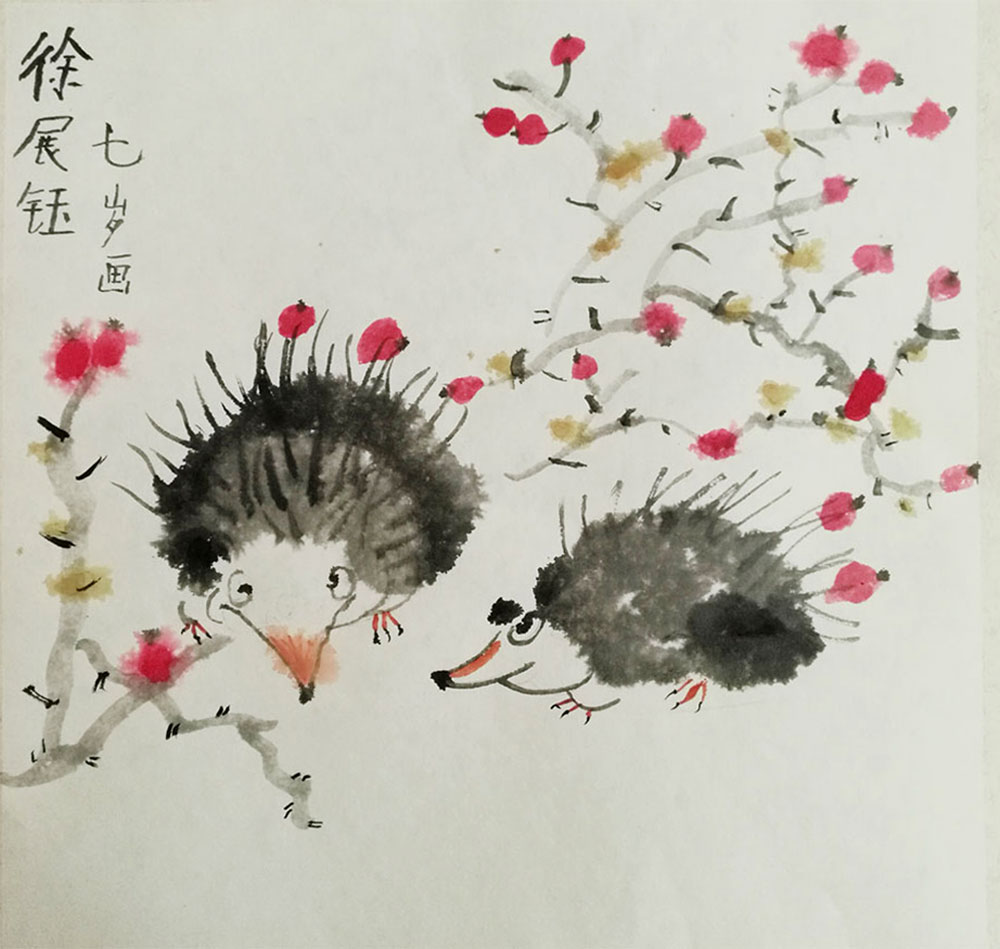 徐展钰
七岁画